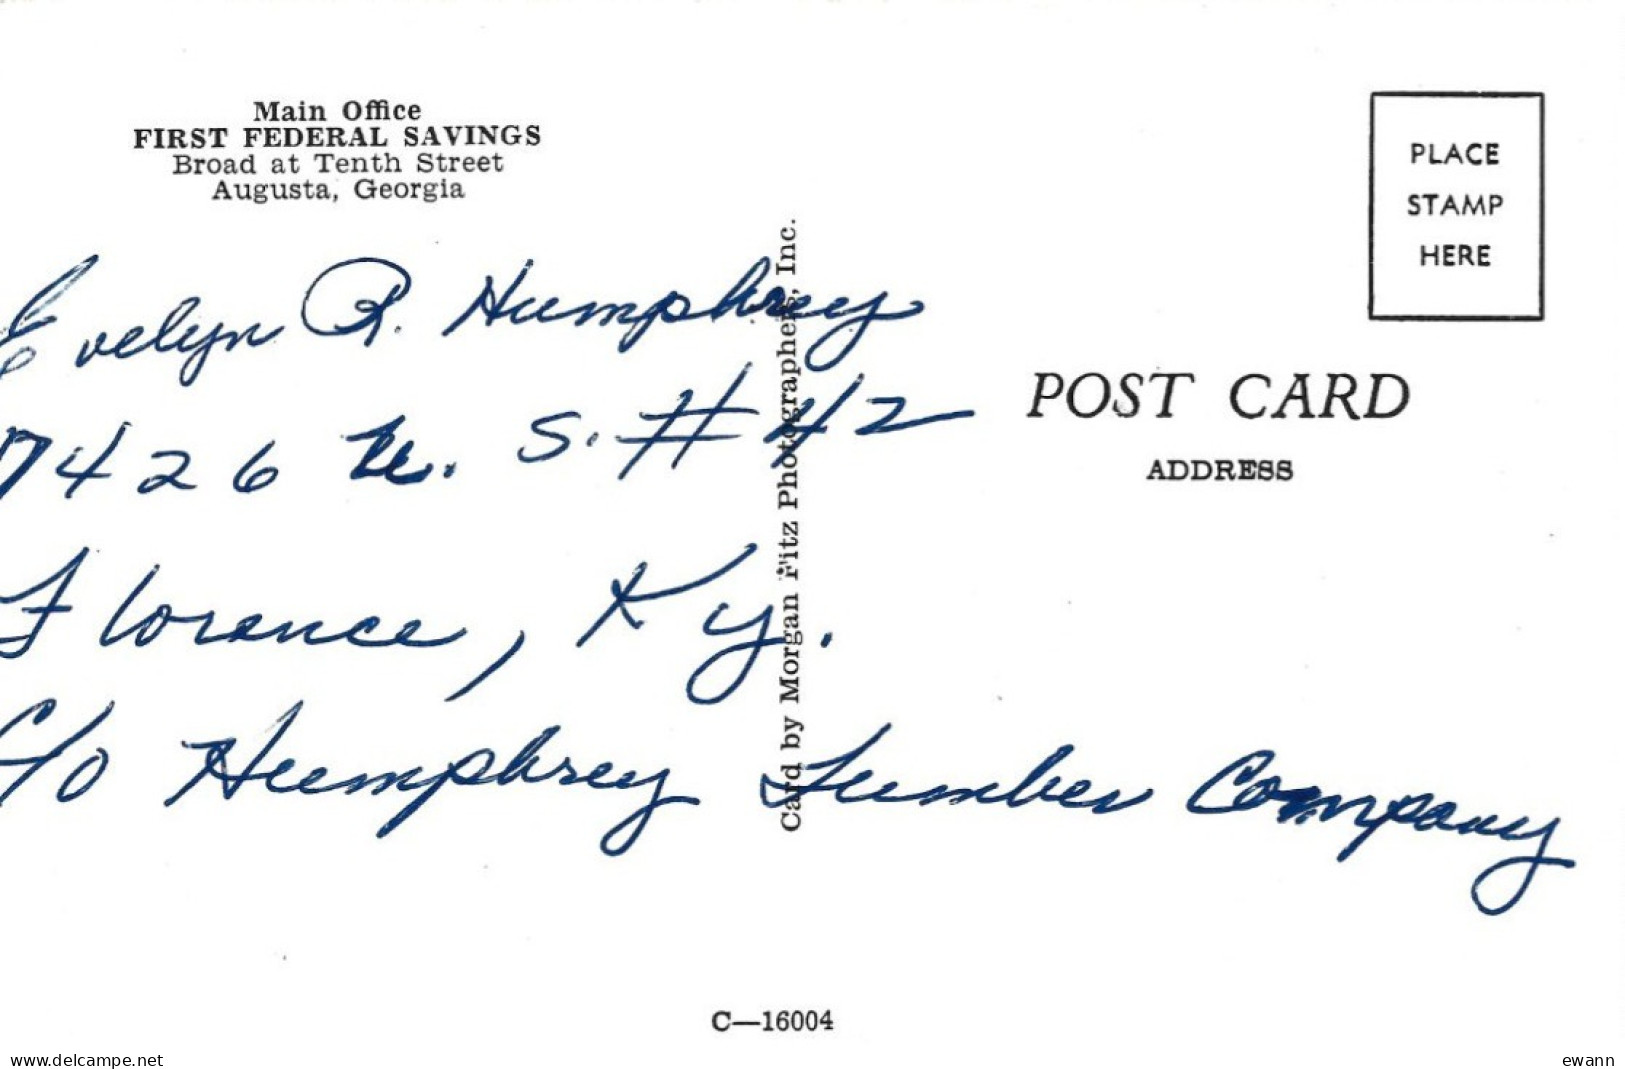 Main Office
FIRST FEDERAL SAVINGS
Broad at Tenth Street
Augusta, Georgia
PLACE
STAMP
HERE
Evelyn R. Humphrey
7426 U. S. # 42
Florence, Ky.
C/o Humphrey Lumber Company
Card by Morgan Fitz Photographers, Inc.
POST CARD
ADDRESS
C—16004
www.delcampe.net
ewann